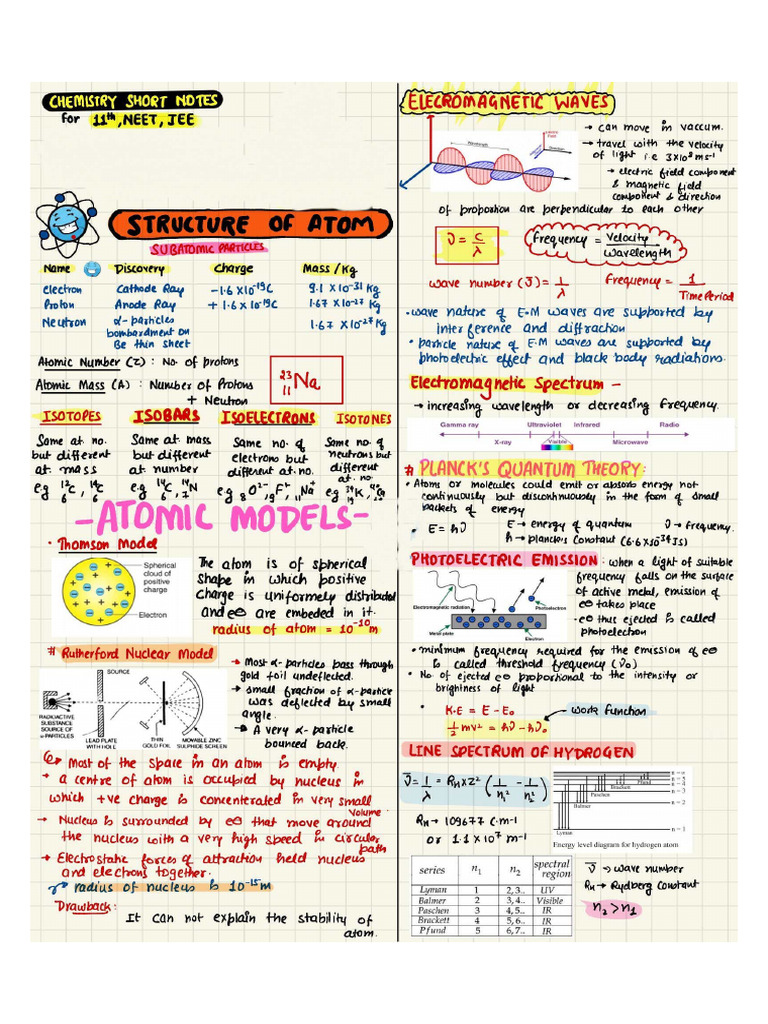 CHEMISTRY SHORT NOTES
for 11th, NEET, JEE
STRUCTURE OF ATOM
SUBATOMIC PARTICLES
Name Discovery Charge Mass/Kg
electron Cathode Ray -1.6 X10-19C 9.1 X10-31 Kg
Proton Anode Ray +1.6 X10-19C 1.67 X10-27 Kg
Neutron α-particles
bombardment on
Be thin sheet
1.67 X10-27 Kg
Atomic Number (Z) : No. of protons
Atomic Mass (A) : Number of Protons
+ Neutron
23
11 Na
ISOTOPES ISOBARS ISOELECTRONS ISOTONES
Same at no.
but different
at. mass
eg 12 6 C, 14 6 C
Same at. mass
but different
at. number
eg 14 6 C, 14 7 N
Same no. of
electrons but
different at. no.
eg 8O2-, 9F-, 11Na+
Same no. of
neutrons but
different
at. no.
eg 39 19 K, 40 20 Ca
-ATOMIC MODELS-
• Thomson Model
Spherical
cloud of
positive
charge
Electron
The atom is of spherical
shape in which positive
charge is uniformely distributed
and e⊖ are embeded in it.
radius of atom = 10-10 m
# Rutherford Nuclear Model
SOURCE
RADIOACTIVE
SUBSTANCE
SOURCE OF
α-PARTICLES
LEAD PLATE
WITH HOLE
THIN
GOLD FOIL
MOVABLE ZINC
SULPHIDE SCREEN
→ Most α-particles pass through
gold foil undeflected.
→ small fraction of α-particle
was deflected by small
angle.
→ A very α-particle
bounced back.
Most of the space in an atom is empty.
→ a centre of atom is occupied by nucleus in
which +ve charge is concenterated in very small
volume
→ Nucleus is surrounded by e⊖ that move around
the nucleus with a very high speed in circular
path
→ Electrostatic forces of attraction held nucleus
and electrons together.
radius of nucleus is 10-15 m
Drawback:
It can not explain the stability of
atom.
ELECROMAGNETIC WAVES
Wavelength
→ can move in vaccum.
→ travel with the velocity
of light i.e 3X10⁸ ms-1
→ electric field component
& magnetic field
component & direction
of propostion are perpendicular to each other
ν = c/λ
Frequency = Velocity/Wavelength
wave number (ν̅) = 1/λ
Frequency = 1/Time Period
• wave nature of E.M waves are supported by
interference and diffraction
• particle nature of E.M waves are supported by
photoelectric effect and black body radiations.
Electromagnetic Spectrum -
→ increasing wavelength or decreasing frequency.
Gamma ray Ultraviolet Infrared Radio
X-ray Visible Microwave
# PLANCK'S QUANTUM THEORY:
• Atoms or molecules could emit or absorb energy not
continuously but discontinuously in the form of small
packets of energy
• E = hν
E → energy of quantum ν → frequency.
h → planck's constant (6.6 X10-34 Js)
PHOTOELECTRIC EMISSION: when a light of suitable
frequency falls on the surface
of active metal, emission of
e⊖ takes place
-e⊖ thus ejected is called
photoelectron
Electromagnetic radiation
Photoelectron
Metal plate
Electron
• minimum frequency required for the emission of e⊖
is called threshold frequency (ν₀)
• No. of ejected e⊖ proportional to the intensity or
brighness of light
• K.E = E - E₀
work function
1/2 mv² = hν - hν₀
LINE SPECTRUM OF HYDROGEN
ν̅ = 1/λ = RH X Z² (1/n₁² - 1/n₂²)
RH → 109677 cm-1
or 1.1 X 10⁷ m-1
n = ∞
n = 5
n = 4
n = 3
n = 2
n = 1
Pfund
Brackett
Paschen
Balmer
Lyman
Energy level diagram for hydrogen atom
series n1 n2 spectral region
Lyman 1 2,3.. UV
Balmer 2 3,4.. Visible
Paschen 3 4,5.. IR
Brackett 4 5,6.. IR
Pfund 5 6,7.. IR
ν̅ → wave number
RH → Rydberg Constant
n₂ > n₁